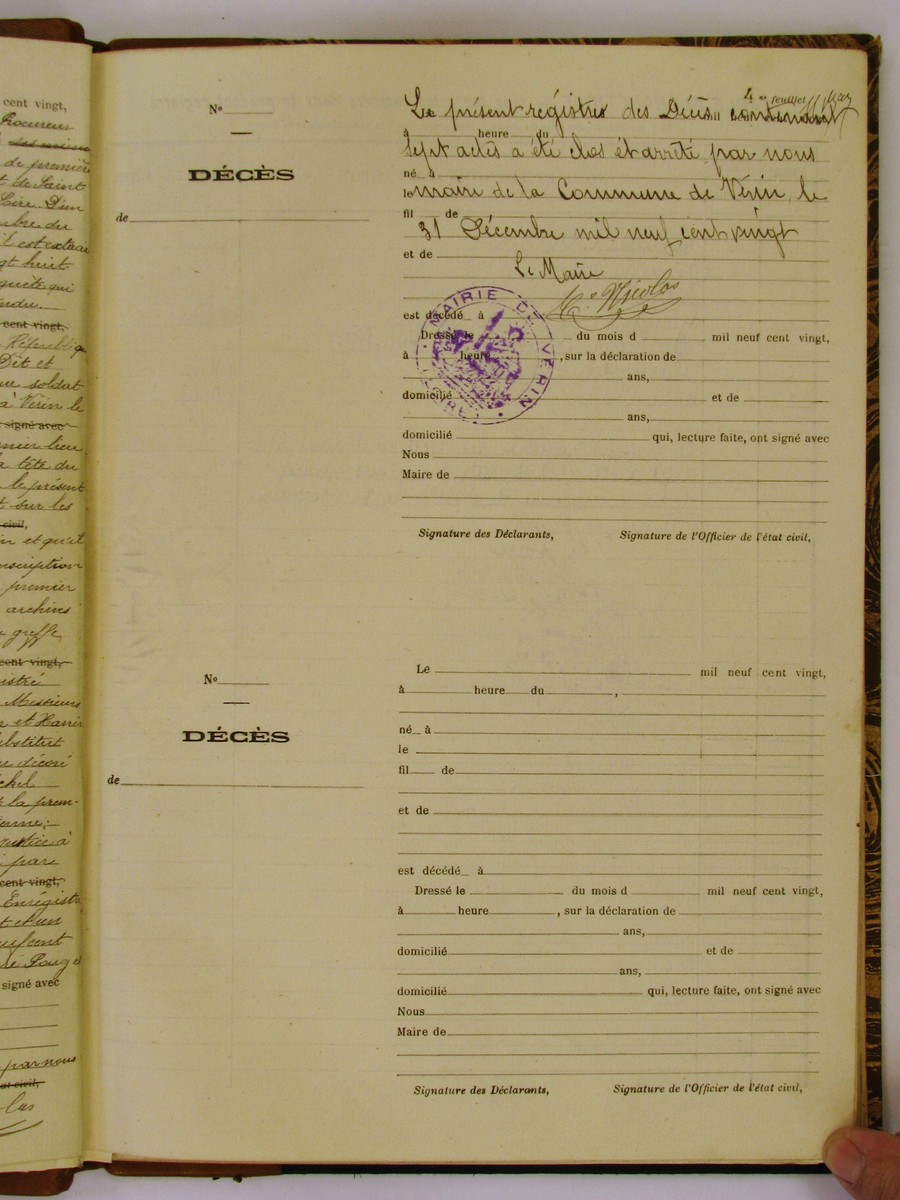 cent vingt,
Procureur
de première
t de Saint
Loire. D'un
bre du
il est extrait
gt huit
quête qui
endu.
cent vingt,
République
Dit et
soldat
à Vérin le
signé avec
mier lieu
a tête du
le présent
t sur les
civil,
in et qu'il
nscription
premier
archives
greffe
cent vingt,
Messieurs
n et Henri
ubstitut
décoré
chel
la prem-
ienne;
Justice à
par
cent vingt,
Enregistré
t et un
neuf cent
signé avec
par nous
civil,
las
4 me feuillet
N°
DÉCÈS
de
Le présent registre des Décès contenant
à heure du
sept actes a été clos et arrêté par nous
né à
le maire de la Commune de Vérin, le
fil de
31 Décembre mil neuf cent vingt
et de
Le Maire
Nicolas
est décédé à
MAIRIE DE VÉRIN
(LOIRE)
Dressé le du mois d mil neuf cent vingt,
à heure , sur la déclaration de
ans,
domicilié et de
ans,
domicilié qui, lecture faite, ont signé avec
Nous
Maire de
Signature des Déclarants, Signature de l'Officier de l'état civil,
N°
DÉCÈS
de
Le mil neuf cent vingt,
à heure du ,
né à
le
fil de
et de
est décédé à
Dressé le du mois d mil neuf cent vingt,
à heure , sur la déclaration de
ans,
domicilié et de
ans,
domicilié qui, lecture faite, ont signé avec
Nous
Maire de
Signature des Déclarants, Signature de l'Officier de l'état civil,